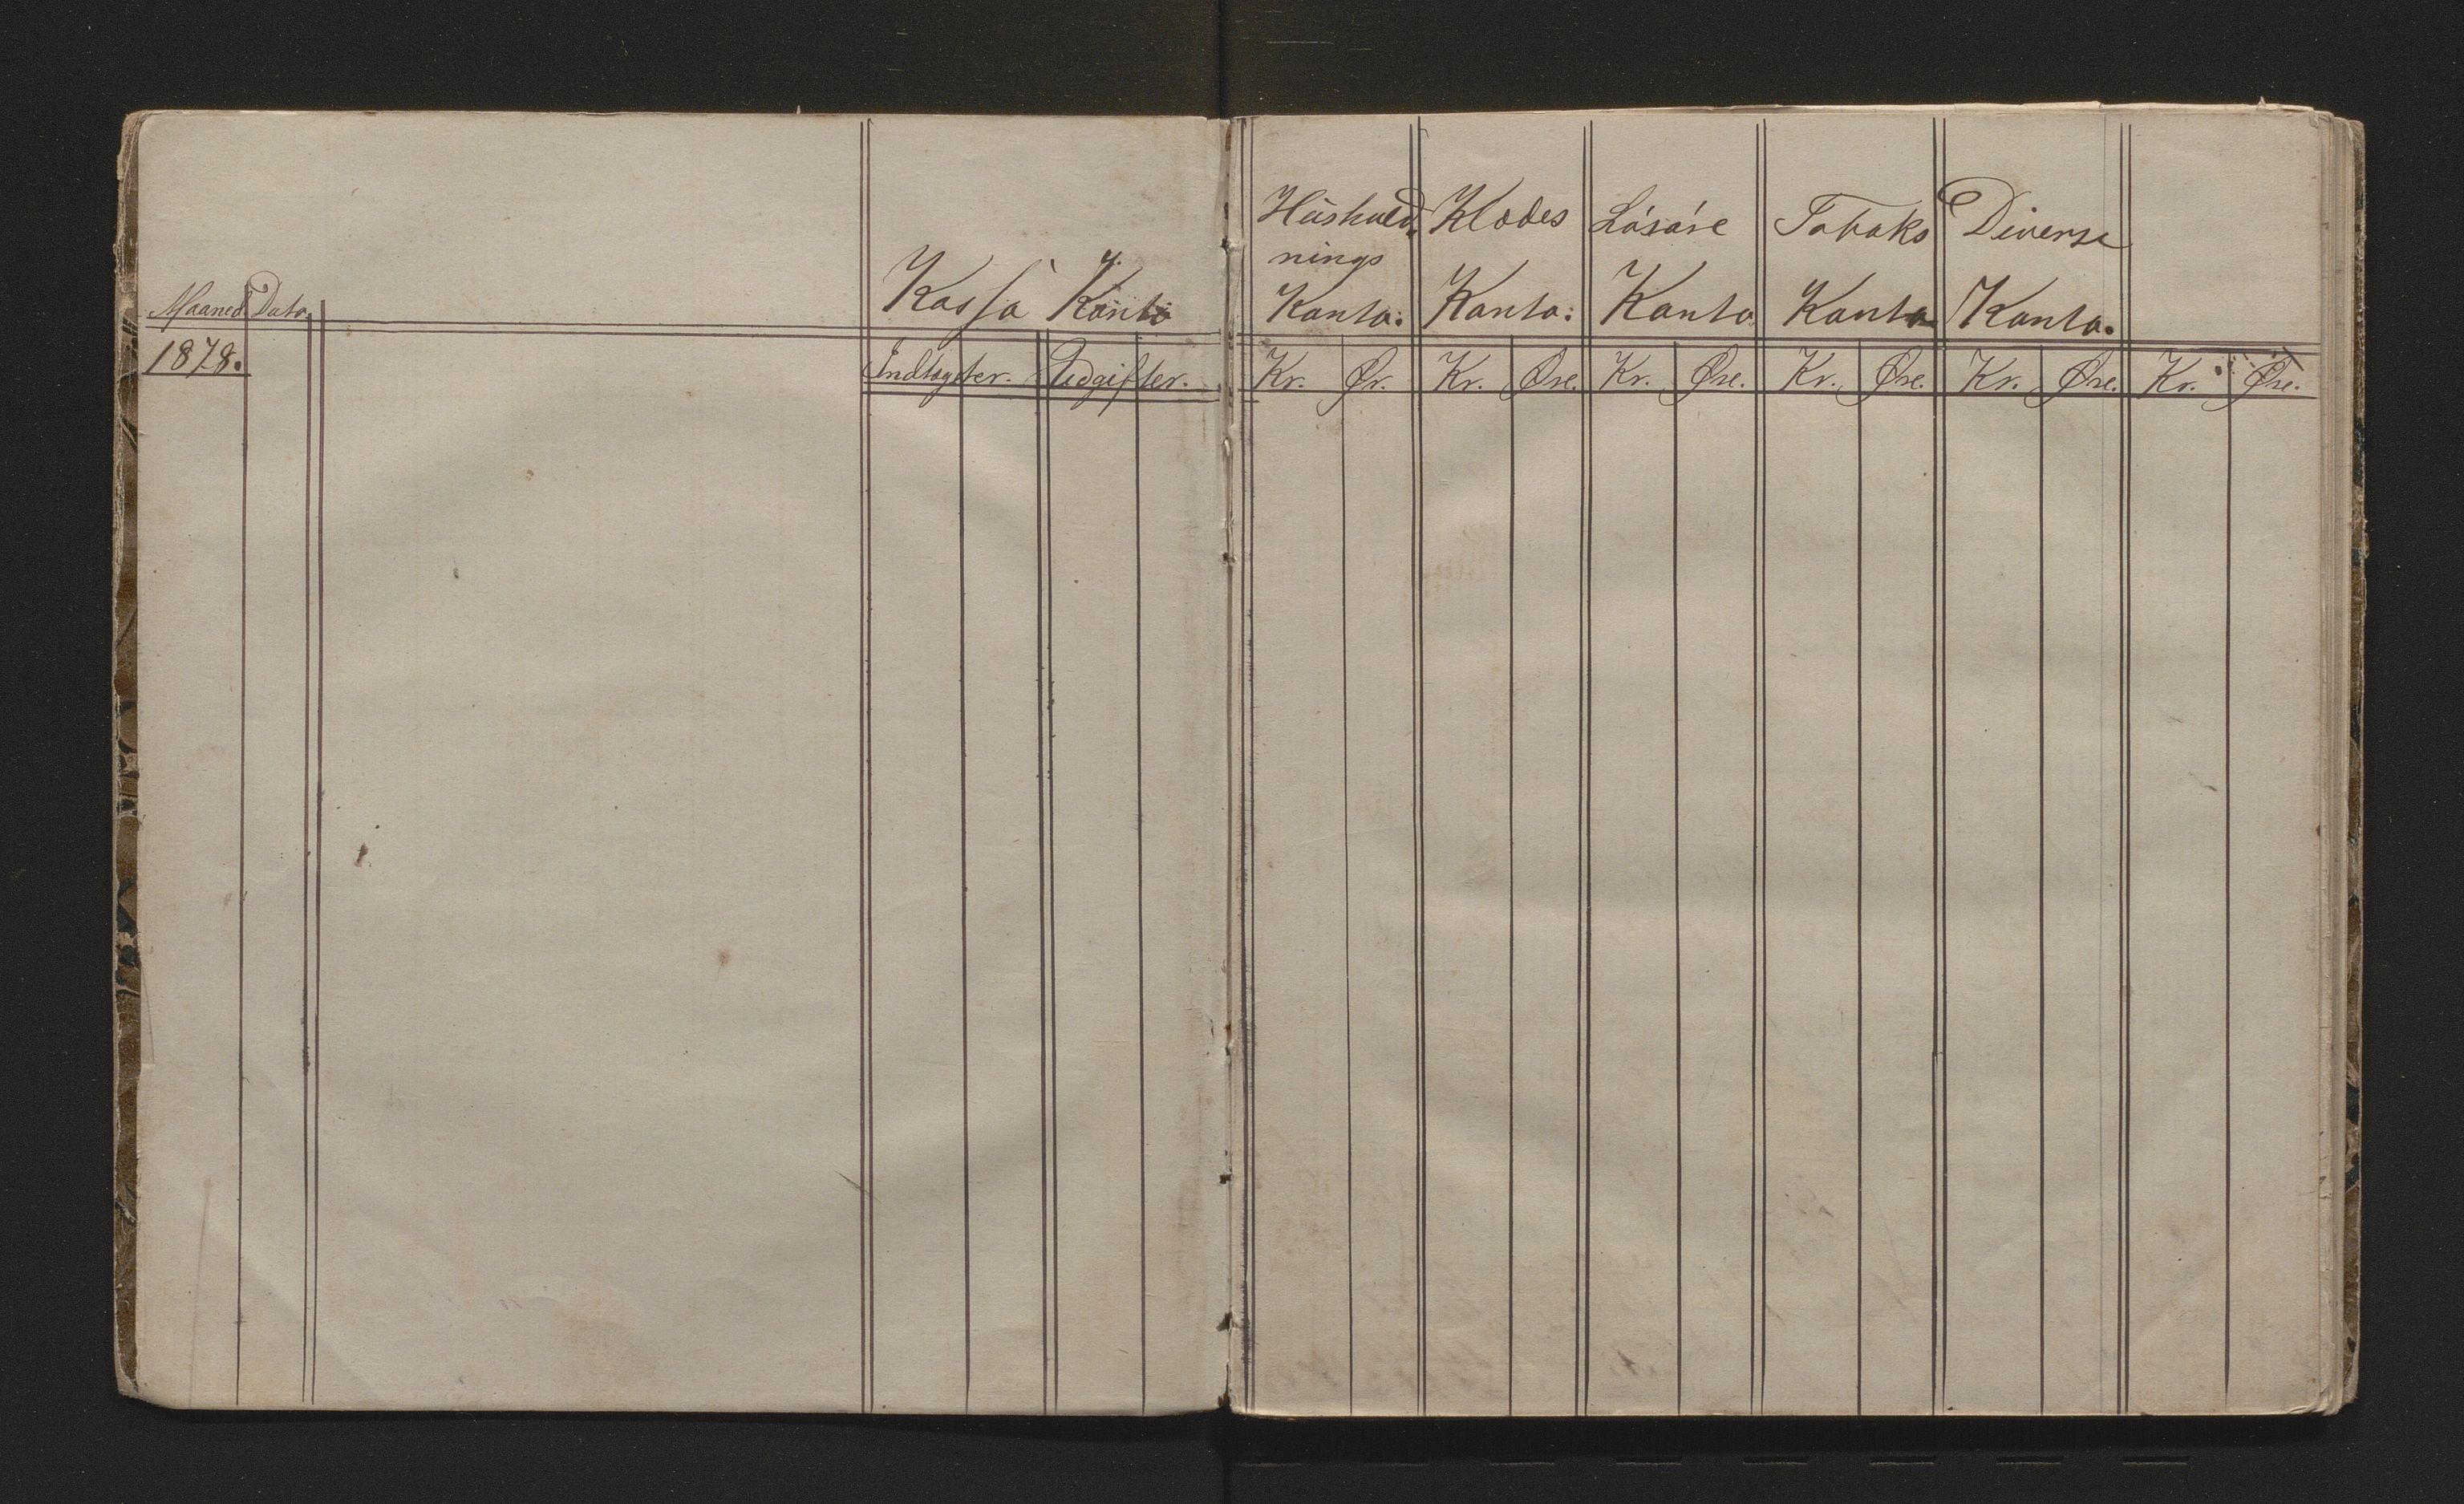 Maaned Dato.
1878.
Kassa Konto
Indtægter. Udgifter.
Hüshold-
nings
Konto:
Klædes
Konto:
Konto
Tobaks
Konto
Diverse
Konto.
Kr. Ør. Kr. Øre. Kr. Øre. Kr. Øre. Kr. Øre. Kr. Øre.